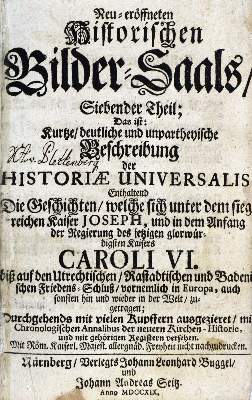 Neu-eröffneten
Historischen
Bilder-Saals/
Siebender Theil;
Das ist:
Kurtze/ deutliche und unpartheyische
Beschreibung
der
HISTORIÆ UNIVERSALIS
Enthaltend
Die Geschichten/ welche sich unter dem sieg
reichen Kaiser JOSEPH, und in dem Anfang
der Regierung des jetzigen glorwür-
digsten Kaisers
CAROLI VI.
biß auf den Utrechtischen/ Rastadtischen und Badeni
schen Friedens-Schluß/ vornemlich in Europa, auch
sonsten hin und wieder in der Welt/ zu-
getragen;
Durchgehends mit vielen Kupffern ausgezieret/ mi
Chronologischen Annalibus der neuern Kirchen-Historie,
und mit gehörigen Registern versehen.
Mit Röm. Kaiserl. Majest. allergnäd. Freyheit nicht nachzudrucken.
Nürnberg/ Verlegts Johann Leonhard Buggel/
und
Johann Andreas Seitz.
Anno MDCCXIX.